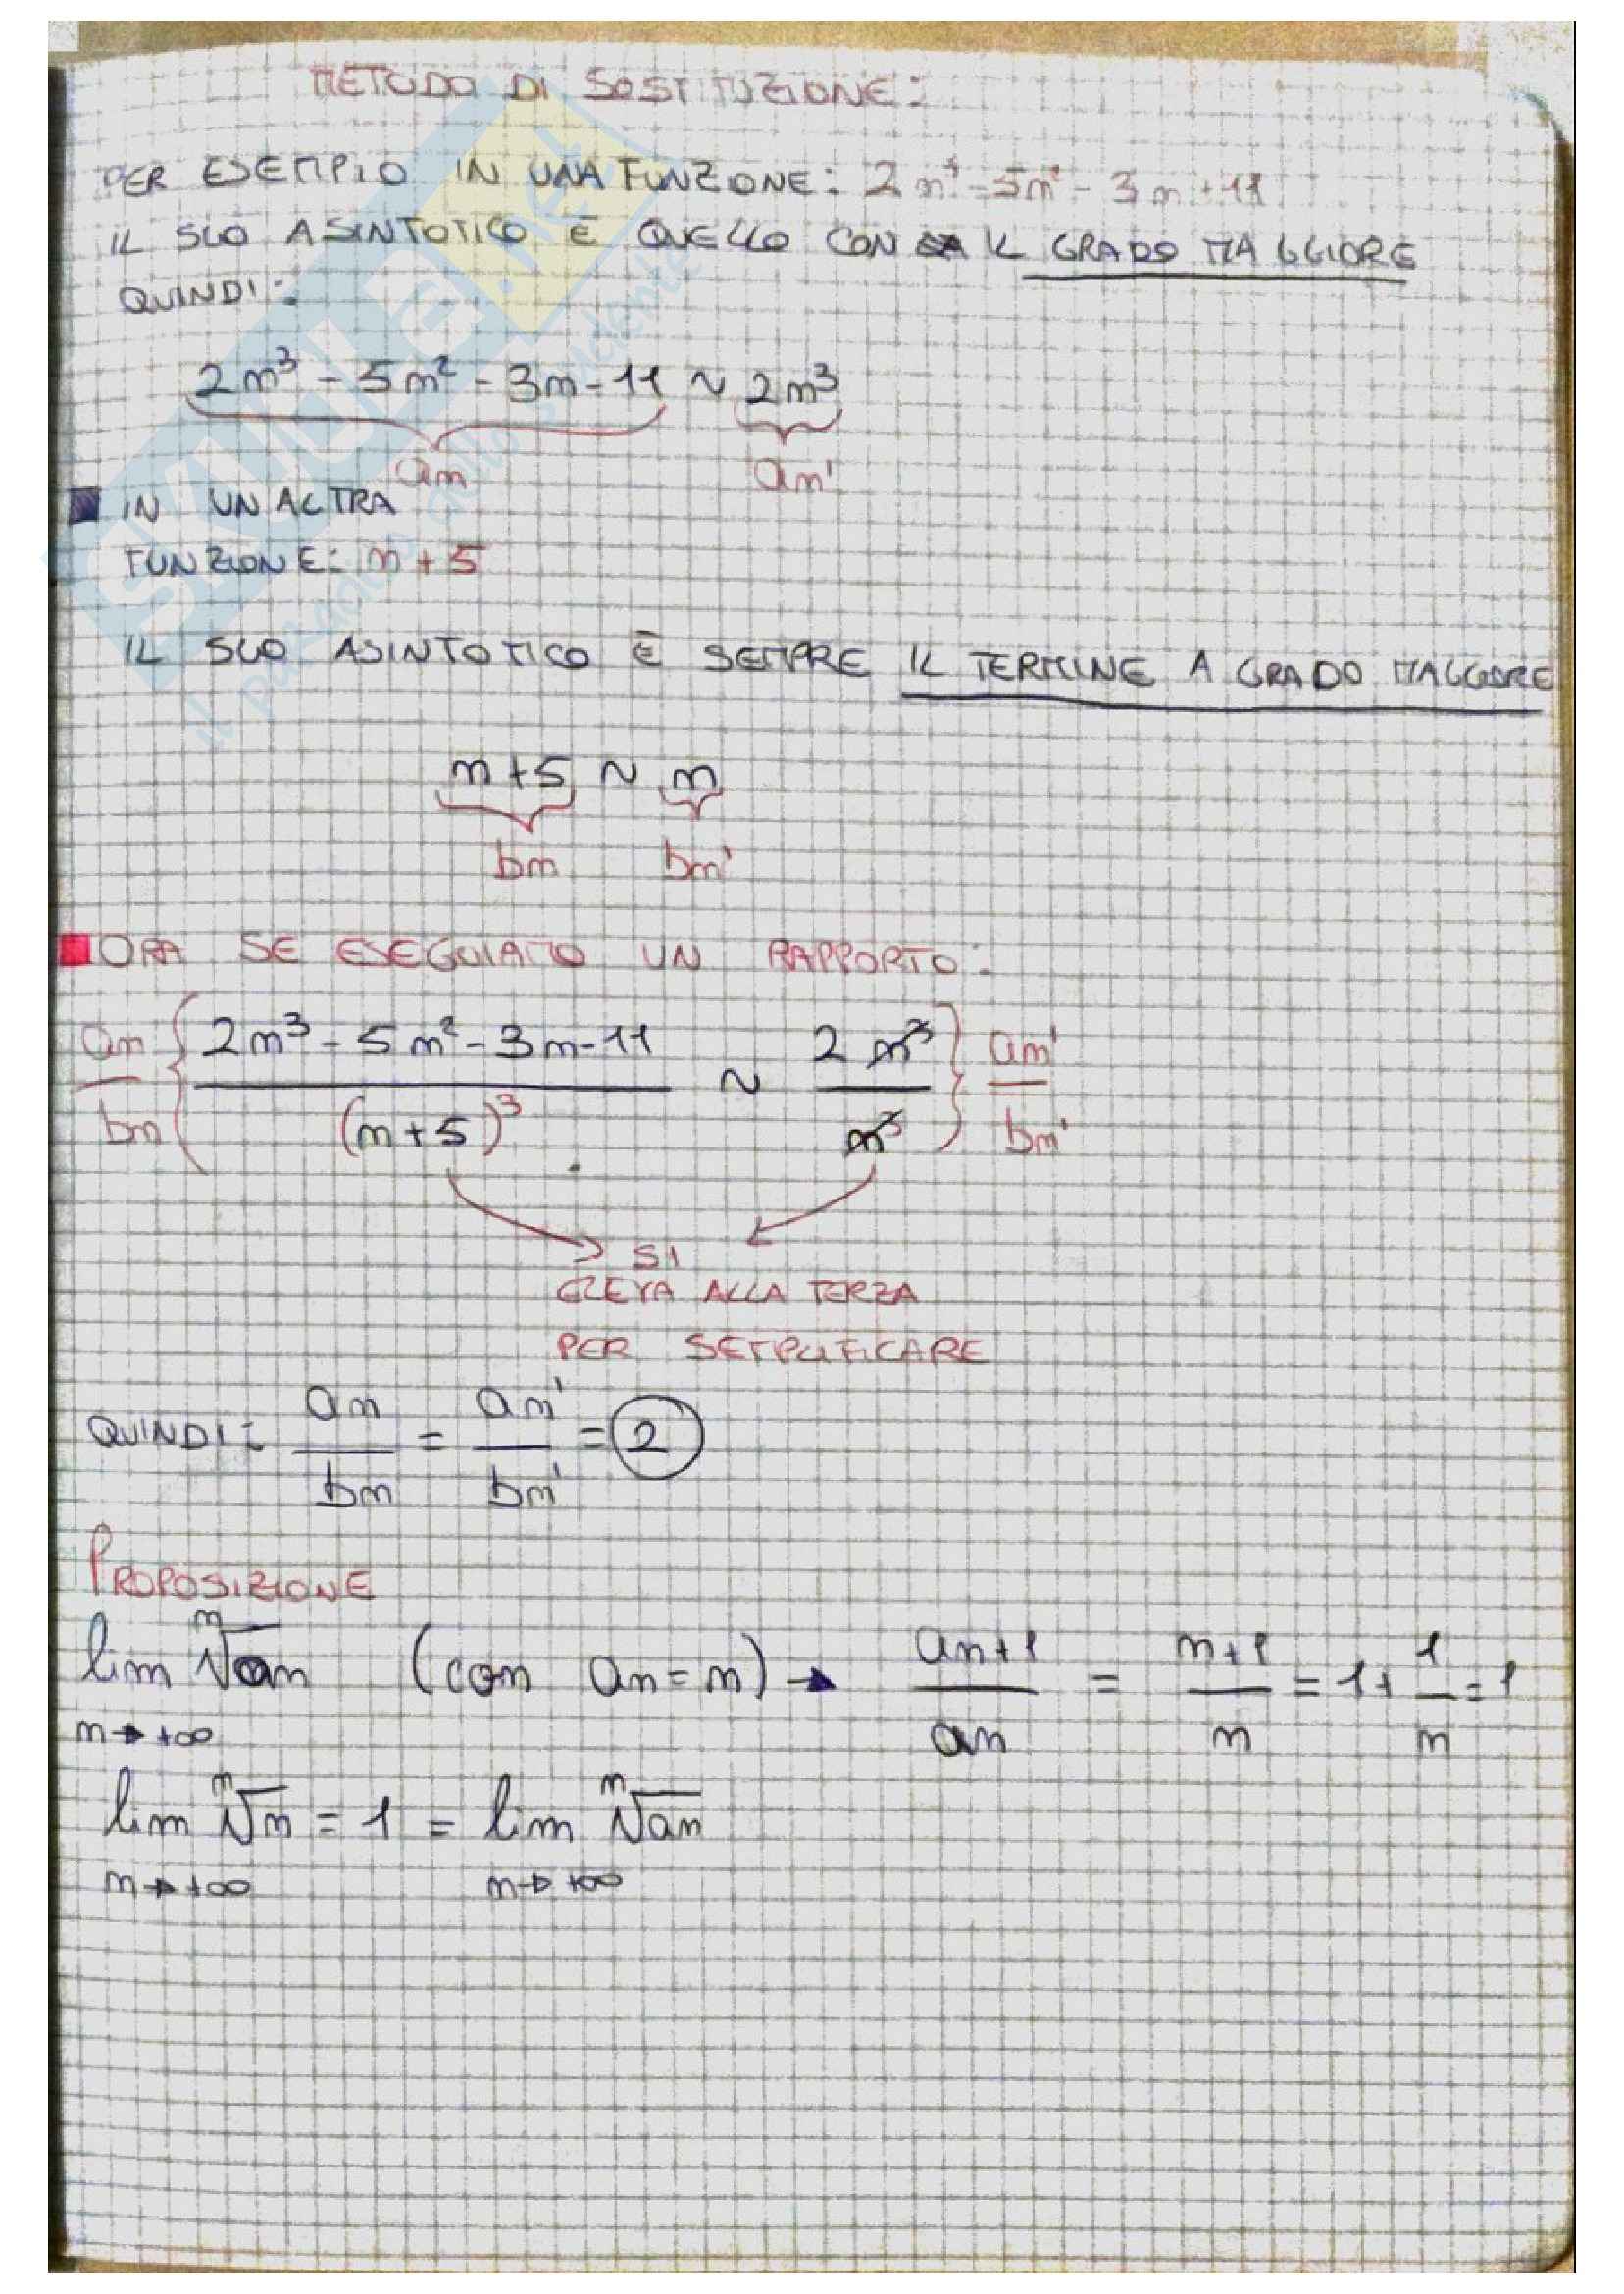 METODO DI SOSTITUZIONE:
PER ESEMPIO IN UNA FUNZIONE: 2n - 5n - 3n + 11
IL SUO ASINTOTICO È QUELLO CON IL GRADO MAGGIORE
QUINDI:
2n³ - 5n² - 3n - 11 ~ 2n³
an an'
IN UN ALTRA
FUNZIONE: n + 5
IL SUO ASINTOTICO È SEMPRE IL TERMINE A GRADO MAGGIORE
n+5 ~ n
bn bn'
ORA SE ESEGUIAMO UN RAPPORTO:
an/bn { 2n³ - 5n² - 3n - 11 / (n+5)³ ~ 2n³ / n³ } an'/bn'
SI
ELEVA ALLA TERZA
PER SEMPLIFICARE
QUINDI: an/bn = an'/bn' = 2
PROPOSIZIONE
lim ⁿ√an (con an = n) → an+1/an = n+1/n = 1 + 1/n = 1
n→+∞
lim ⁿ√n = 1 = lim ⁿ√an
n→+∞ n→+∞
SKUOLA.net